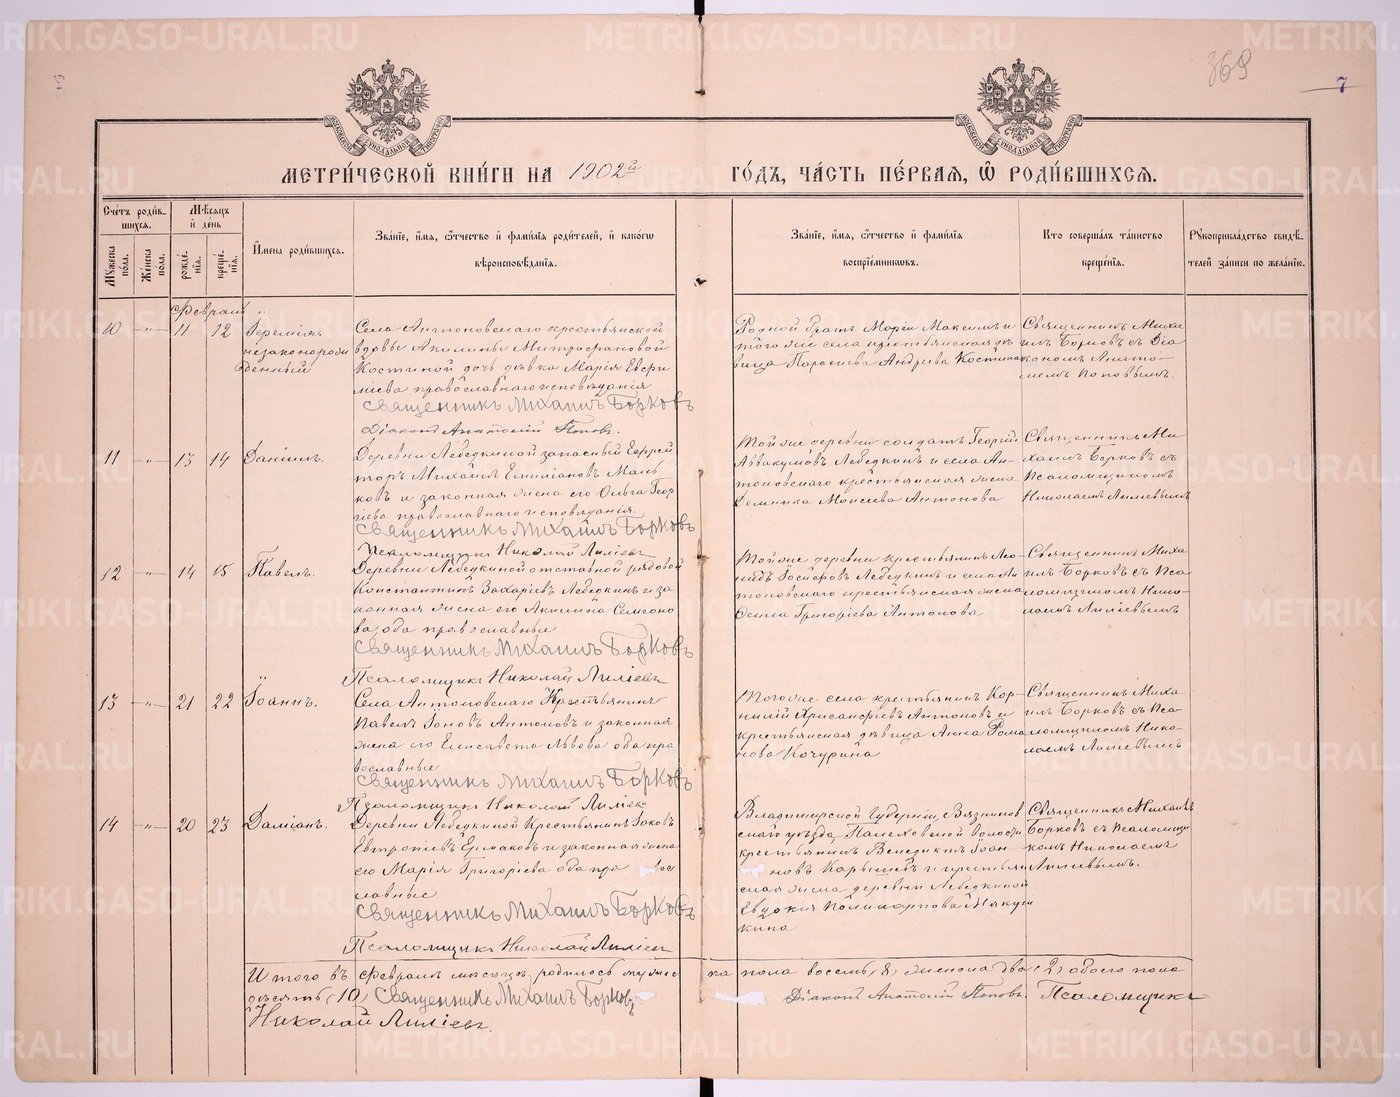 369
7
МЕТРИ́ЧЕСКОЙ КНИ́ГИ НА 1902й ГО́ДЪ, ЧА́СТЬ ПЕ́РВАЯ, Ѽ РОДИ́ВШИХСЯ.
Сче́тъ роди́вшихся.
Мꙋ́жеска по́ла.
Же́нска по́ла.
Мѣ́сяцъ и҆ де́нь
рожде́нїѧ.
креще́нїѧ.
И҆мена̀ роди́вшихся.
Зва́нїе, и҆́мѧ, ѻ҆́тчество и҆ фами́лїѧ роди́телей, и҆ како́гѡ вѣроисповѣ́данїѧ.
Зва́нїе, и҆́мѧ, ѻ҆́тчество и҆ фами́лїѧ воспрїе́мниковъ.
Кто̀ соверша́лъ та́инство креще́нїѧ.
Рꙋкоприкла́дство свидѣ́телей за́писи по жела́нїю.
Февраль
10 -"- 11 12 Іеремія незаконорожденный
Села Антоновскаго крестьянской
вдовы Акилины Митрофановой
Костиной дочь дѣвка Марія Евфи
міева православнаго исповѣданія
Священникъ Михаилъ Борковъ
Діаконъ Анатолій Поповъ.
Родной братъ Маріи Максимъ и
того же села крестьянская дѣ
вица Параскева Андреева Костина
Священникъ Миха
илъ Борковъ съ Діа
кономъ Анато-
ліемъ Поповымъ.
11 -"- 13 14 Даніилъ.
Деревни Лебедкиной запасный Ефрей
торъ Михаилъ Емиліановъ Маль
ковъ и законная жена его Ольга Геор
гіева православнаго исповѣданія.
Священникъ Михаилъ Борковъ
Псаломщикъ Николай Лиліевъ
Той же деревни солдатъ Георгій
Аввакумовъ Лебедкинъ и села Ан
тоновскаго крестьянская жена
Домника Моисеева Антонова
Священникъ Ми-
хаилъ Борковъ съ
Псаломщикомъ
Николаемъ Лиліевымъ
12 -"- 14 15 Павелъ.
Деревни Лебедкиной отставной рядовой
Константинъ Захаріевъ Лебедкинъ и за
конная жена его Акилина Семеоно
ва, оба православные
Священникъ Михаилъ Борковъ
Псаломщикъ Николай Лиліевъ
Той же деревни крестьянинъ Лео-
нидъ Іосифовъ Лебедкинъ и села Ан
тоновскаго крестьянская жена
Григоріева Антонова
Священникъ Миха
илъ Борковъ съ Пса
ломщикомъ Нико
лаемъ Лиліевымъ
13 -"- 21 22 Іоаннъ.
Села Антоновскаго Крестьянинъ
Павелъ Іоновъ Антоновъ и законная
жена его Елисавета Львова оба пра
вославные
Священникъ Михаилъ Борковъ
Псаломщикъ Николай Лиліевъ
Того же села крестьянинъ Кор-
нилій Хрисанфіевъ Антоновъ и
крестьянская дѣвица Анна Рома
нова Кочурина
Священникъ Миха
илъ Борковъ съ Пса-
ломщикомъ Нико-
лаемъ Лиліевымъ
14 -"- 20 23 Даміанъ.
Деревни Лебедкиной Крестьянинъ Іаковъ
Евтропіевъ Ермаковъ и законная жена
его Марія Григоріева оба пра вос
лавные
Священникъ Михаилъ Борковъ
Псаломщикъ Николай Лиліевъ
Владимірской Губерніи, Вязников
скаго уѣзда, Палеховской волости
крестьянинъ Венедиктъ Іоан
новъ Карышевъ и крестьян
ская жена деревни Лебедкиной
Евдокія Поликарпова
Священникъ Михаилъ
Борковъ съ Псаломщи
комъ Николаемъ
Лиліевымъ.
Итого въ февралѣ мѣсяцѣ родилось мужес ка пола восемь (8) женска два (2) обоего пола
десять (10) Священникъ Михаилъ Борковъ Діаконъ Анатолій Поповъ. Псаломщикъ
Николай Лиліевъ.
METRIKI.GASO-URAL.RU